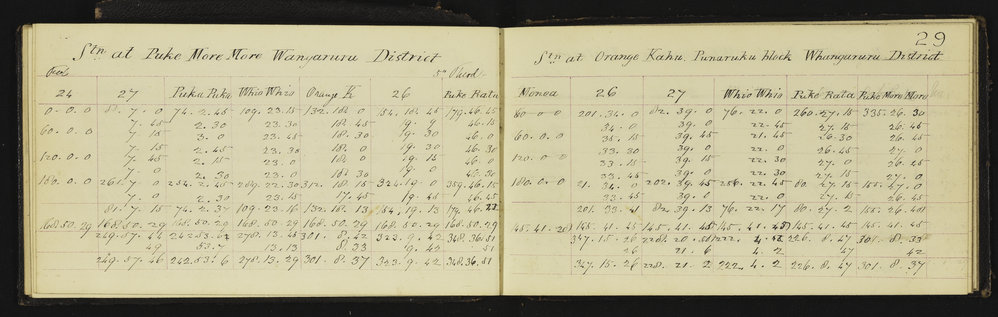 29
Stn at Puke More More Wangaruru District
24 27 Puka Puka Whio Whio Orange K 26 Puke Rata
0. 0. 0 81. 7. 0 74. 2. 45 109. 23. 15 132. 18. 0 154. 19. 45 179. 46. 45
7. 45 2. 30 23. 30 18. 45 19. 0 46. 15
60. 0. 0 7. 15 3. 0 23. 45 18. 30 19. 30 46. 0
7. 15 2. 45 23. 30 18. 0 19. 30 46. 30
120. 0. 0 7. 45 2. 15 23. 0 18. 0 19. 15 46. 0
7. 0 2. 30 23. 0 18. 30 19. 0 46. 30
180. 0. 0 261. 7. 0 254. 2. 45 289. 22. 30 312. 18. 15 324. 19. 0 359. 46. 15
7. 0 2. 30 23. 15 17. 45 19. 0 46. 45
81. 7. 15 74. 2. 37 109. 23. 16 132. 18. 13 154. 19. 13 179. 46. 23
168. 50. 29 168. 50. 29 168. 50. 29 168. 50. 29 168. 50. 29 168. 50. 29 168. 50. 29
249. 57. 44 278. 13. 45 301. 8. 42 323. 9. 42 348. 36. 51
49 53. 7 13. 13 8. 33 9. 42 51
249. 57. 46 242. 53. 6 278. 13. 29 301. 8. 37 323. 9. 42 348. 36. 51
Stn at Orange Kahu, Punaruku block Whangaruru District
Monoa 26 27 Whio Whio Puke Rata Puke More More
60. 0. 0 201. 34. 0 82. 39. 0 76. 22. 0 260. 27. 15 335. 26. 30
34. 0 39. 0 22. 45 27. 15 26. 45
60. 0. 0 35. 15 39. 45 21. 45 26. 30 26. 45
33. 30 39. 0 22. 0 26. 45 27. 0
120. 0. 0 33. 15 39. 15 22. 30 27. 0 26. 45
33. 45 39. 0 22. 30 27. 15 27. 0
180. 0. 0 21. 34. 0 202. 39. 45 256. 22. 45 80. 27. 15 155. 27. 0
33. 45 39. 0 22. 0 27. 15 26. 45
201. 33. 41 82. 39. 13 76. 22. 17 80. 27. 2 155. 26. 40
45. 41. 20 145. 41. 45 145. 41. 45 145. 41. 45 145. 41. 45 145. 41. 45
347. 15. 26 228. 20. 58 222. 4. 2 226. 8. 47 301. 8. 33
26 21. 6 4. 2 47 42
347. 15. 26 228. 21. 2 222. 4. 2 226. 8. 47 301. 8. 37